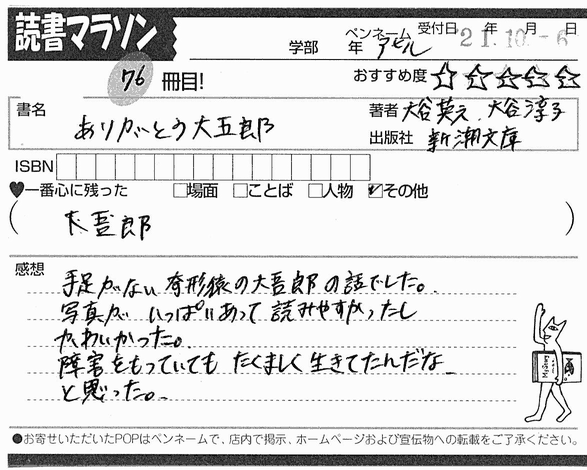 読書マラソン
学部 年 ペンネーム アヒル 受付日 年 月 日 '21.10.-6
76冊目! おすすめ度 ☆☆☆☆☆
書名 ありがとう大五郎
著者 大谷英之、大谷淳子
出版社 新潮文庫
ISBN
♥一番心に残った □場面 □ことば □人物 ☑その他
( 大吾郎 )
感想
手足がない奇形猿の大吾郎の話でした。
写真が いっぱいあって 読みやすかったし
かわいかった。
障害をもっていても たくましく生きてたんだな
と思った。
●お寄せいただいたPOPはペンネームで、店内で掲示、ホームページおよび宣伝物への転載をご了承ください。